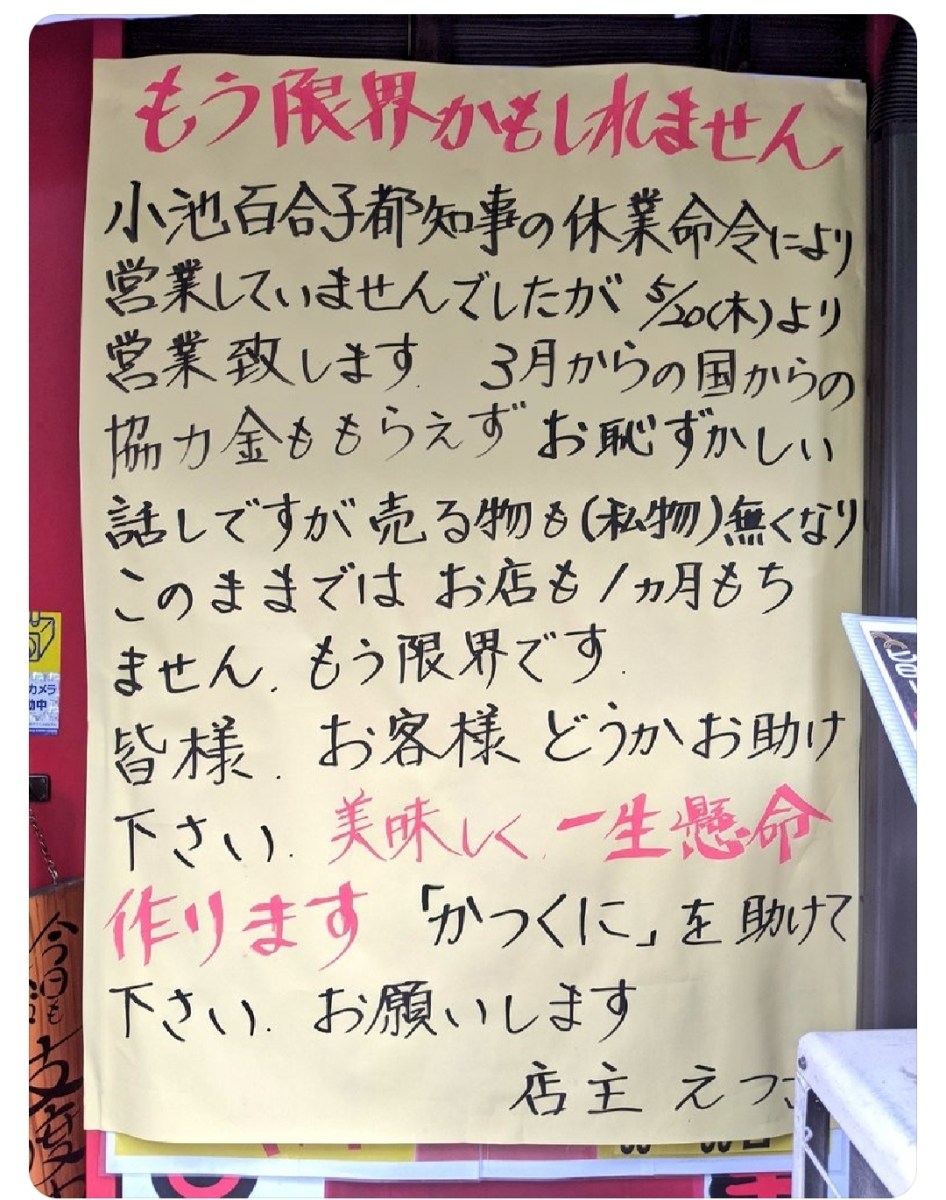 もう限界かもしれません
小池百合子都知事の休業命令により
営業していませんでしたが 5/20(木)より
営業致します. 3月からの国からの
協力金ももらえず お恥ずかしい
話しですが 売る物も(私物)無くなり
このままでは お店も1ヵ月もち
ません. もう限界です.
皆様. お客様 どうかお助け
下さい. 美味しく. 一生懸命
作ります 「かつくに」を助けて
下さい. お願いします
店主 えつ
カメラ
動中
今日も
支度